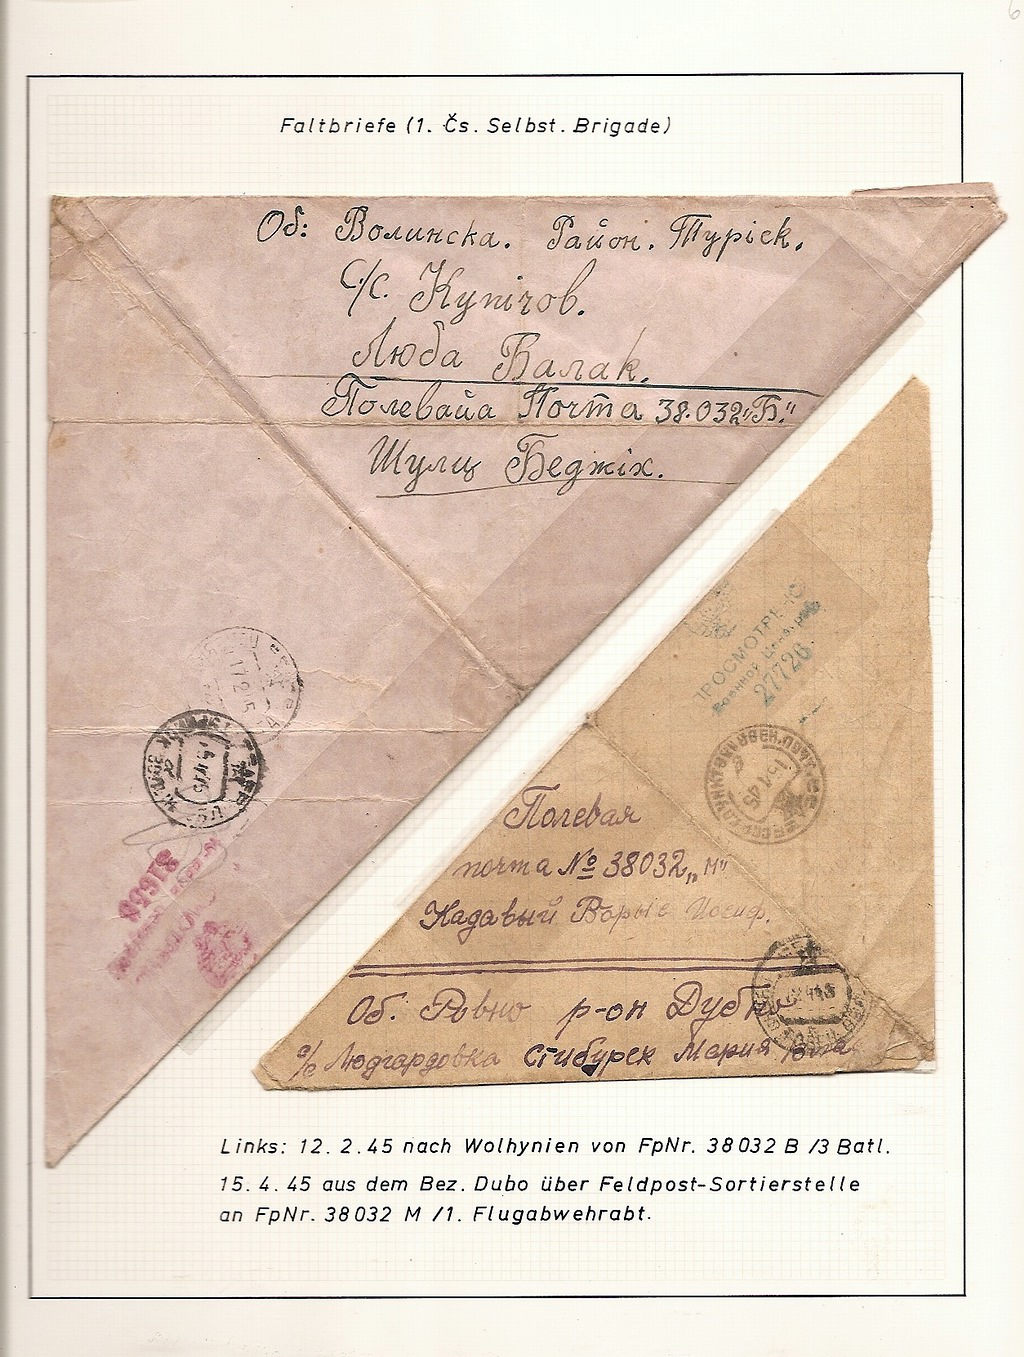 6
Faltbriefe (1. Čs. Selbst. Brigade)
Об: Волинска. Район. Турієк.
С/С. Купічов.
Люба Балак.
Полевайа Почта 38.032„Б."
Шулц Беджіх.
17 2 45
31658
ПРОСМОТРЕНО
Военной Цензурой
27726
15 4 45
Полевая
почта № 38032„М"
Кадавый Иосиф.
Об. Ровно р-он
с/с Людгардовка Мария
Links: 12. 2. 45 nach Wolhynien von FpNr. 38032 B /3 Batl.
15. 4. 45 aus dem Bez. Dubo über Feldpost-Sortierstelle
an FpNr. 38032 M /1. Flugabwehrabt.